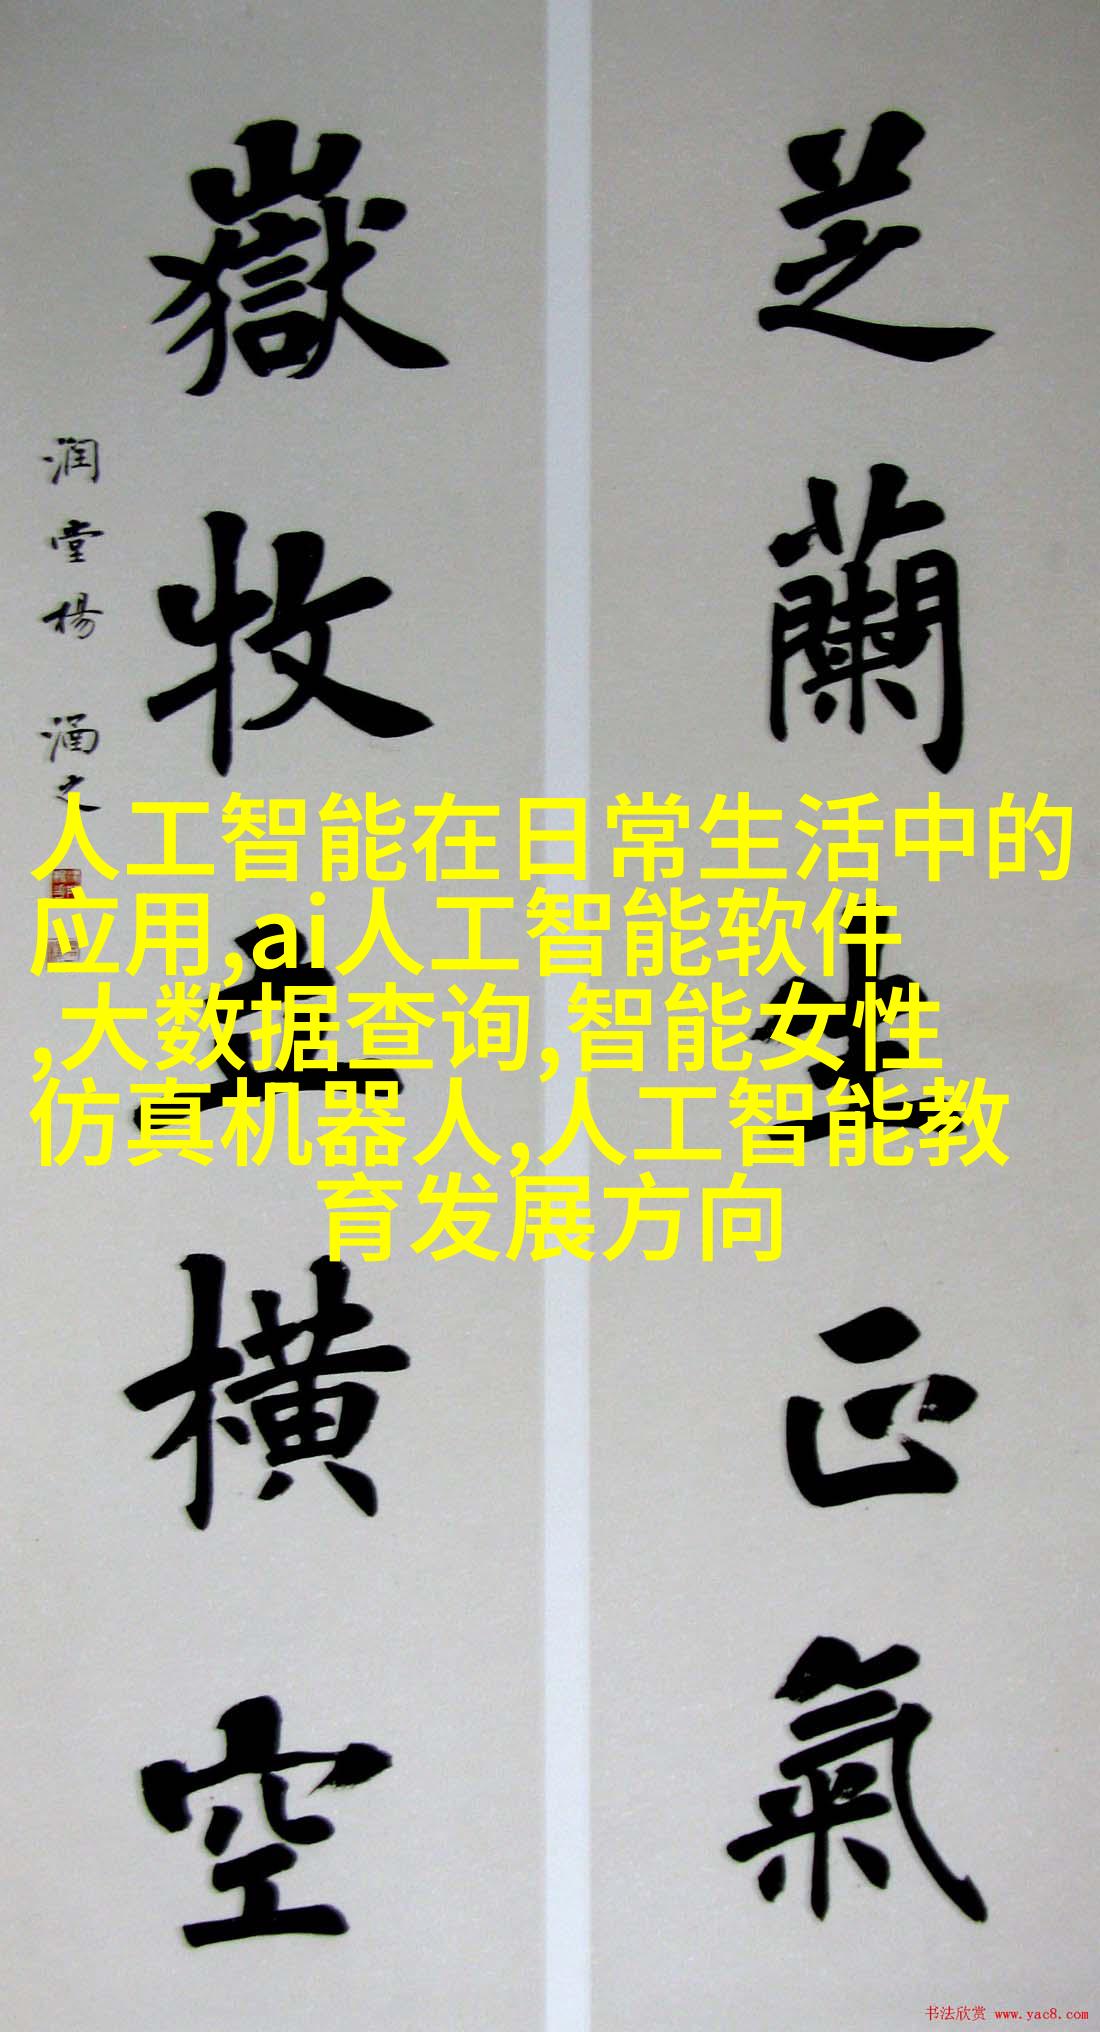 芝蘭生正氣
嶽牧橫空
润堂楊涵之
人工智能在日常生活中的
应用,ai人工智能软件
,大数据查询,智能女性
仿真机器人,人工智能教
育发展方向
书法欣赏 www.yac8.com